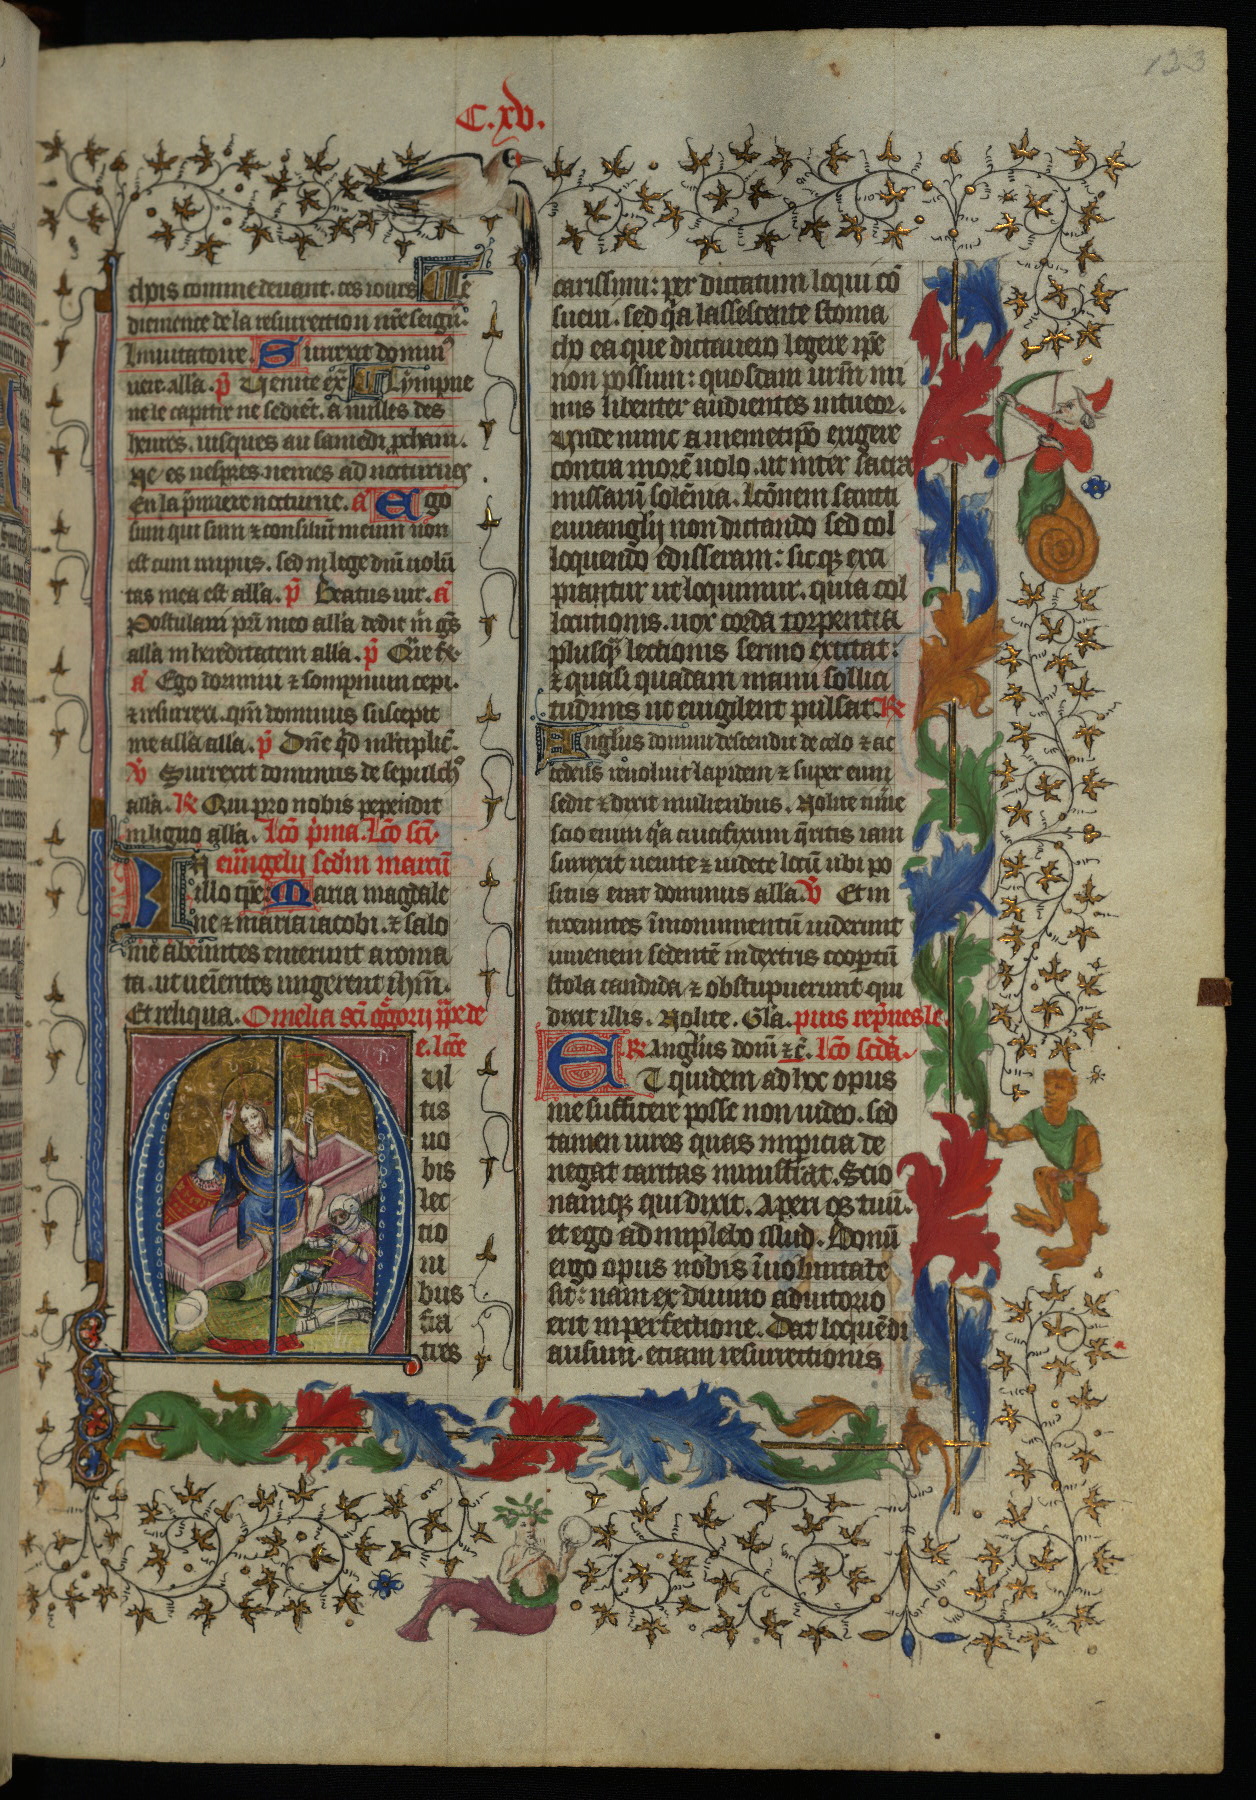 133
C.xv.
elpis comme deuant. ces iours Le
diemence de la resurrection nr̄e seigñ.
Inuitatoire. Surrexit domin9
uere. all̄a. p̄s Uenite ex̄ Lympne
ne le capitre ne sediēt. a nulles des
heures. iusques au samedi
ne es uespres nemes ad nocturnes
En la p̄miere nocturne. a᷎ Ego
sum qui sum ⁊ consiliū meum non
est cum impiis. sed in lege dn̄i uolū
tas mea est all̄a. p̄s Beatus uir. a᷎
Postulaui pr̄m meo all̄a dedit m̄ gn̄s
all̄a in hereditatem all̄a. p̄s Qr̄e fr̄e.
a᷎ Ego dormiui ⁊ sompnum cepi.
⁊ resurrexi. qm̄ dominus suscepit
me all̄a all̄a. p̄s Dn̄e q̄d m̄ltiplic̄.
v̄ Surrexit dominus de sepulch°
all̄a. R̄ Qui pro nobis pependit
in ligno all̄a. Lc̄o p̄ma. Lc̄o sc̄i.
IN eūngelij scd̄m marcū
illo tp̄e. Maria magdale
ne ⁊ maria iacobi. ⁊ salo
me abeuntes emerunt aroma
ta. ut ueīentes ungerent ih̄m.
Et reliqua. Omelia sc̄i g̊gorij pp̄e de
e. lc̄ce
M Ul
tis
uo
bis
lec
tio
ni
bus
fra
tres
carissimi: per dictatum loqui cō
sueui. sed q̄a lassescente stoma
cho ea que dictauero legere ip̄e
non possum: quosdam ur̄m mi
nus libenter audientes intueor.
Unde nunc a memetip̄o exigere
contra morē uolo. ut inter sacra
missarū solēnia. lc̄onem sancti
euuanglij non dictando sed col
loquendo edisseram: sicq3 exci
piantur ut loquimur. quia col
locutionis. uox corda torpentia
plusq̄3 lectionis sermo excitat:
⁊ quasi quadam manu sollici
tudinis ut euigilent pulsat. R̄
Angl̄us domini descendit de celo ⁊ ac
cedens reuoluit lapidem ⁊ super eum
sedit ⁊ dixit mulieribus. Nolite time
scio enim q̄a crucifixum q̄ritis iam
surrexit uenite ⁊ uidete locū ubi po
situs erat dominus all̄a. v̄ Et in
troeuntes ī monumentū uiderunt
iuuenem sedentē in dextris coopertū
stola candida ⁊ obstupuerunt qui
dixit illis. Nolite. Gl̄a. puis rep̄nes le
R̄ Angl̄us dom̄ ⁊c̄. Lc̄o scd̄a.
ET quidem ad hoc opus
me sufficere posse non uideo. sed
tamen uires quas imp̄icia de
negat caritas ministrat. Scio
namq3 qui dixit. Aperi os tuū.
et ego ad implebo illud. Bonū
ergo opus nobis ī uoluntate
sit: nam ex diuino adiutorio
erit in perfectione. Dat loquēdi
ausum. etiam resurrectionis